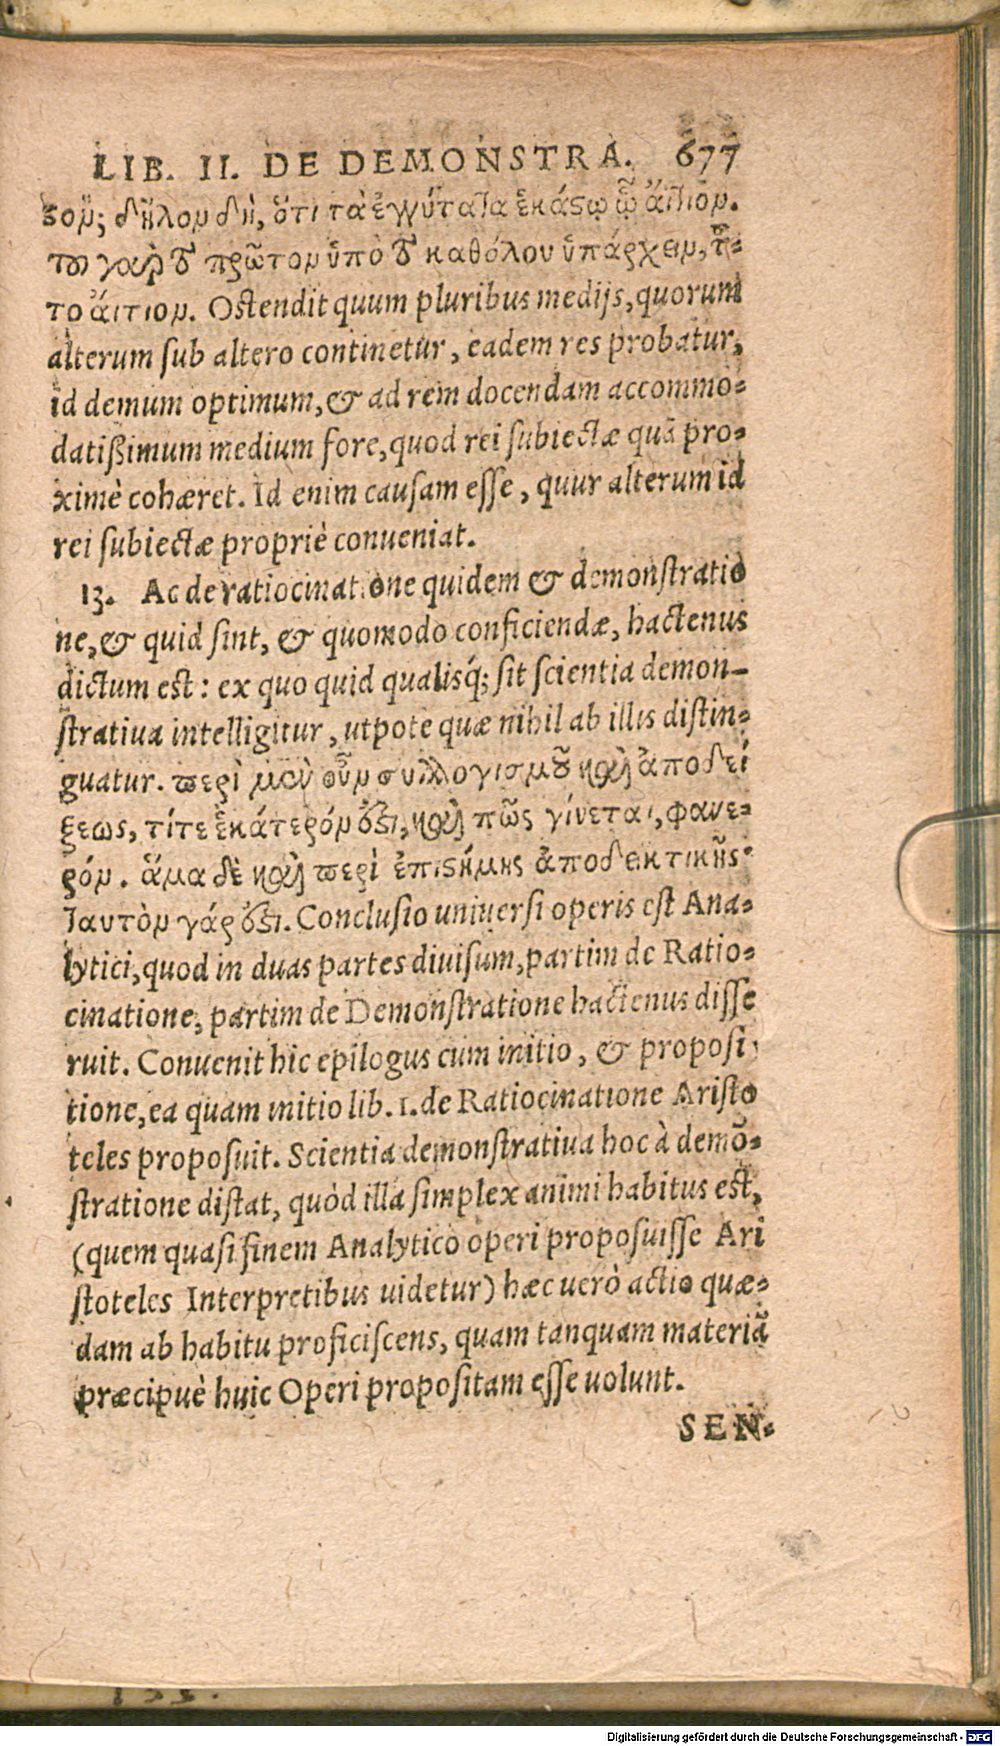 LIB. II. DE DEMONSTRA. 677
ϛον; δῆλον δὴ, ὅτι τὰ ἐγγύτατα ἑκάϛῳ ᾧ αἴτιον.
τοῦ γὰρ τὸ πρῶτον ὑπὸ τὸ καθόλου ὑπάρχειν, τῦ-
το αἴτιον. Ostendit quum pluribus medijs, quorum
alterum sub altero continetur, eadem res probatur,
id demum optimum, & ad rem docendam accommo-
datißimum medium fore, quod rei subiectæ quã pro-
ximè cohæret. Id enim causam esse, quur alterum id
rei subiectæ propriè conueniat.
13. Ac de ratiocinatione quidem & demonstratio
ne, & quid sint, & quomodo conficiendæ, hactenus
dictum est: ex quo quid qualisq́; sit scientia demon-
stratiua intelligitur, utpote quæ nihil ab illis distin-
guatur. περὶ μὲν οὖν συλλογισμοῦ καὶ ἀποδεί
ξεως, τί τε ἑκάτερόν ὅϛι, καὶ πῶς γίνεται, φανε-
ρόν. ἅμα δὲ καὶ περὶ ἐπιϛήμης ἀποδεικτικῆς·
ταυτὸν γάρ ὅϛι. Conclusio uniuersi operis est Ana-
lytici, quod in duas partes diuisum, partim de Ratio-
cinatione, partim de Demonstratione hactenus disse
ruit. Conuenit hic epilogus cum initio, & proposi-
tione, ea quam initio lib. 1. de Ratiocinatione Aristo
teles proposuit. Scientia demonstratiua hoc à demõ-
stratione distat, quòd illa simplex animi habitus est,
(quem quasi finem Analytico operi proposuisse Ari
stoteles Interpretibus uidetur) hæc uerò actio quæ-
dam ab habitu proficiscens, quam tanquam materiã
præcipuè huic Operi propositam esse uolunt.
SEN-
Digitalisierung gefördert durch die Deutsche Forschungsgemeinschaft - DFG